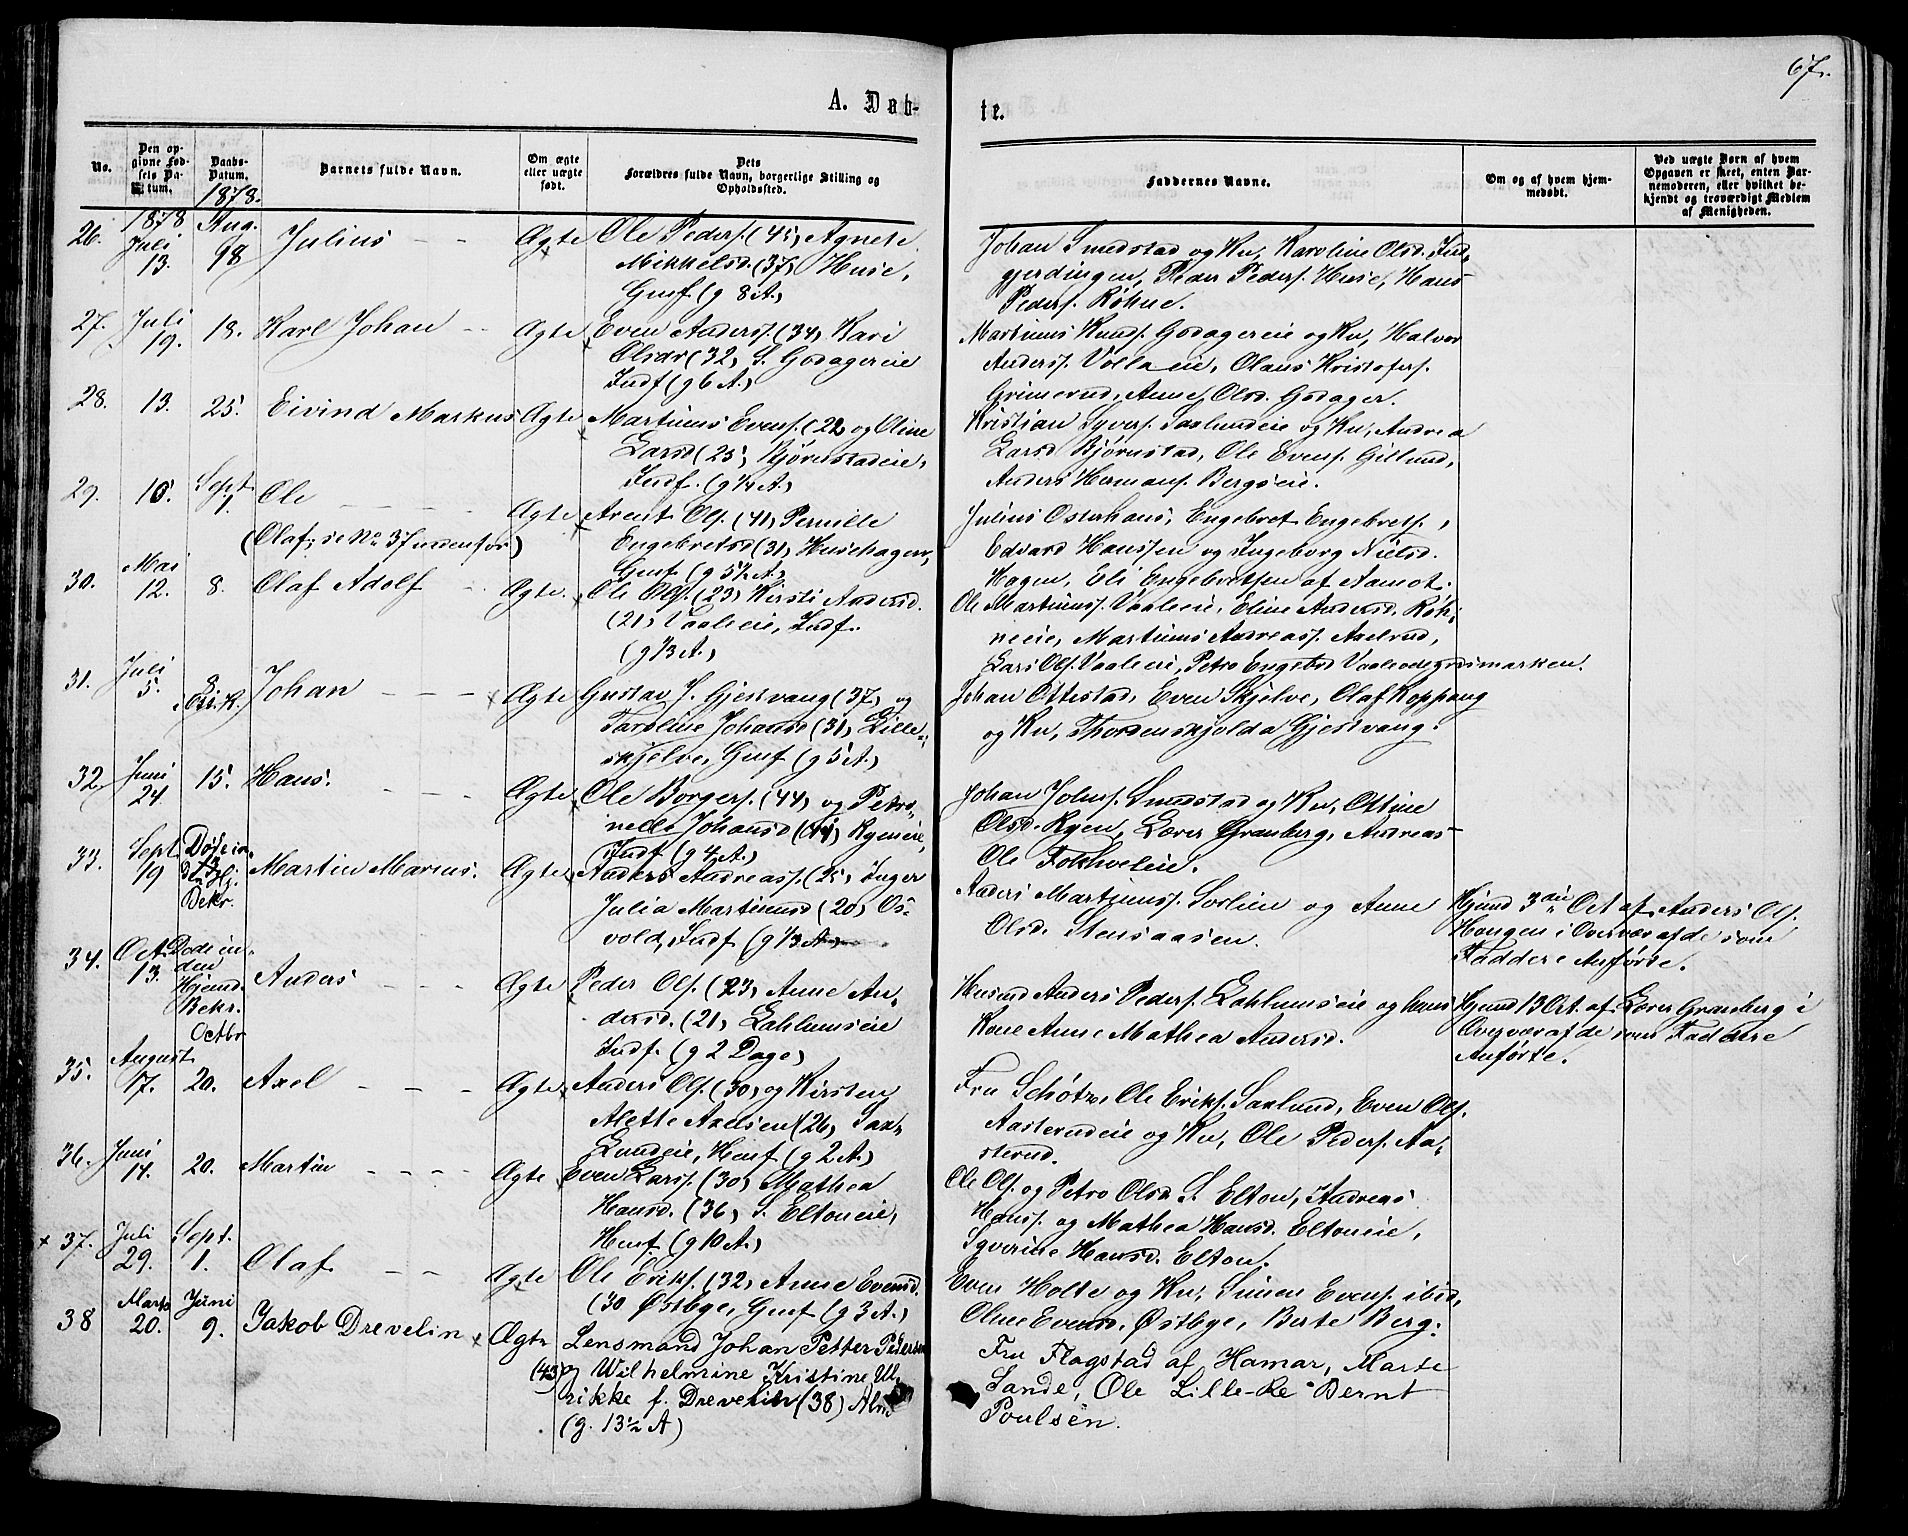 67.
A. Døb-
te.
No.
Den op-
givne Fød-
sels Da-
tum.
Daabs-
Datum.
1878.
Barnets fulde Navn.
Om ægte
eller uægte
født.
Dets
Forældres fulde Navn, borgerlige Stilling og
Opholdssted.
Faddernes Navne.
Om og af hvem hjem-
medøbt.
Ved uægte Børn af hvem
Opgaven er skeet, enten Bar-
nemoderen, eller hvilket be-
kjendt og troværdigt Medlem
af Menigheden.
26. 1878 Juli 13. Aug. Julius - - Ægte Ole Peders. (45) Agnete
Mikkelsd. (37) Huse,
Gusf. (g 8 A.)
Johan Smedstad og Ku, Karoline Olsd. Ind-
gjerdingen, Peder Peders. Huse, Hans
Peders. Røhne.
27. Juli 19. 18. Karl Johan - - Ægte Even Anders. (34) Kari
Olsdr (32) S. Godagereie
Indf (g 6 A.)
Martinus Knuds. Godagereie og Ku, Halvor
Anders. Vollaeie, Olaus Kristofers.
Grimerud, Anne Olsd. Godager.
28. 13. 25. Eivind Markus Ægte Martinus Evens. (22) og Oline
Larsd (25) Bjørnstadeie,
Indf. (g 1/4 A.)
Kristian Syvers. Saxlundeie og Ku, Andrea
Larsd Bjørnstad, Ole Evens. Gillund,
Anders Hermans. Bergseie.
29. 10. Sept. 1. Ole - - - - Ægte Arent Ols. (41) Pernille
(Olaf, se No 37 nedenfor)
Engebretsd (31) Husehagen,
Gusf. (g 5½ A.)
Julius Osterhaus, Engebret Engebrets.,
Edvard Hanssen og Ingeborg Nielsd.
Hagen, Eli Engebretsen af Aamot.
30. Mai 12. 8. Olaf Adolf - Ægte Ole Ols. (23) Kirsti Andersd.
(21) Vaaleeie, Indf.
(g 1/3 A.)
Ole Martinuss. Vaaleeie, Eline Andersd. Røh-
neeie, Martinus Andreass. Aaelrud,
Lars Ols. Vaaleeie, Petro Engebd Vaaleodegaardsmarken.
31. Juli 5. 8 Johan - - - Ægte Gustav J. Gjestvang (37) og
Karoline Johansd (31) Lille-
skjelve, Gusf (g 5 A.)
Johan Ottestad, Even Skjelve, Olaf Koppang
og Ku, Thordenskjolda Gjestvang.
32. Juni 24. 15. Hans. - - - Ægte Ole Borgers. (44) og Petro-
nelle Johansd (44) Ryeneie,
Indf (g 4 A.)
Johan Johns. Smedstad og Ku, Ottine
Olsd. Ryen, Lærer Granberg, Andreas
Ole Fokholeie.
33. Sept 19 Døde in-
Bekr. Martin Marius. Ægte Anders Andreass. (25) Inger
Julia Martinusd (20) Os-
vold, Indf (g 1/3 A.)
Anders Martinuss. Sorlien og Anne
Olsd. Stensaasen.
Hjemd 3die Oct af Anders Ols.
Hongen i Overvær af de som
Faddere Anførte.
34. Oct. 13. Døde in-
den
Hjemd.
Bekr. Anders - - - Ægte Peder Ols. (23) Anne An-
dersd. (21) Lahlumseie
Indf. (g 2 Dage)
Husmd Anders Peders. Lahlumseie og hans
Kone Anne Mathea Andersd.
Hjemd 13 Oct. af Lærer Granberg i
Overvær af de som Faddere
Anførte.
35. August 17. Octbr 20. Axel - - - Ægte Anders Ols. (30) og Kirsten
Alette Axelsen (26) Sax-
lundeie, Husf (g 2 A.)
Fru Schøtz, Ole Eriks. Saxlund, Even Ols.
Aasterudeie og Ku, Ole Peders. Aa-
sterud.
36. Juni 14. 20. Martin - - - Ægte Even Lars. (30) Mathea
Hansd. (36) S. Eltoneie,
Husf. (g 10 A.)
Ole Ols. og Petro Olsd. S. Elton, Andreas
Hans. og Mathea Hansd. Eltoneie,
Syverine Hansd. Elton.
x 37. Juli 29. Sept. 1. Olaf - - Ægte Ole Eriks. (32) Anne Evensd.
(30 Østbye, Gusf (g 3 A.)
Even Holte og Ku, Simen Evens. ibid,
Oline Evensd. Østbye, Berte Berg.
38 Marts 20. Juni 9. Jakob Drevelin Ægte Lensmand Johan Petter Pedersen
(43) og Wilhelmine Kristine Ul-
rikke f. Drevelin (38)
(g. 13½ A)
Fru Flagstad af Hamar, Marte
Sande, Ole Lille-Re Bernt
Poulsen.